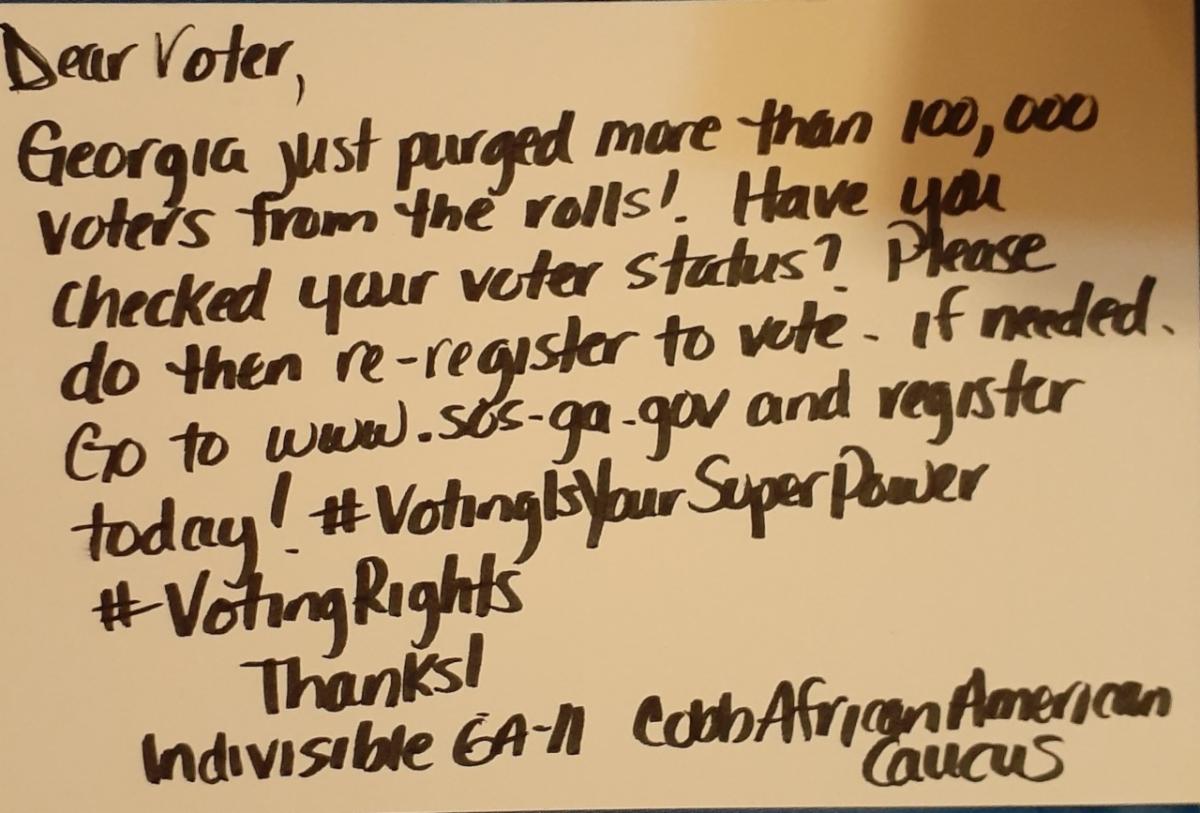 Dear Voter,
Georgia just purged more than 100,000
voters from the rolls! Have you
checked your voter status? Please
do then re-register to vote - if needed.
Go to www.sos-ga-gov and register
today! #VotingIsYourSuperPower
#VotingRights
Thanks!
Indivisible GA-11 CobbAfricanAmerican
Caucus